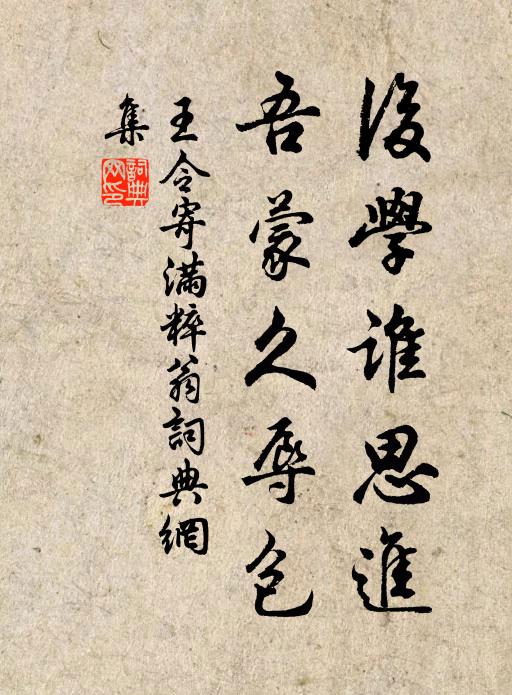 後學誰思進
吾蒙久辱包
王令寄滿粹翁詞典網
集
詞典
網印